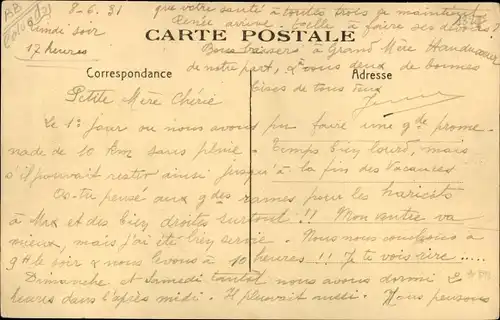 8-6.31
que votre santé à toutes trois se maintient
Lundi soir
Renée arrive-t-elle à faire ses devoirs ?
17 heures
CARTE POSTALE
Bons baisers à Grand'Mère
de notre part, à vous deux de bonnes
Correspondance
Adresse
bises de tous deux
Petite Mère Chérie
Le 1er jour où nous avons pu faire une gde prome-
nade de 10 Km sans pluie. Temps bien lourd, mais
s'il pouvait rester ainsi jusqu'à la fin des Vacances
As-tu pensé aux gdes rames pour les haricots
à Max et des bien droites surtout !! Mon ventre va
mieux, mais j'ai été bien servie. Nous nous couchons à
9 H le soir & nous levons à 10 heures !! Je te vois rire .....
Dimanche et Samedi tantôt nous avons dormi 2
heures dans l'après midi. Il pleuvait aussi. Nous pensons